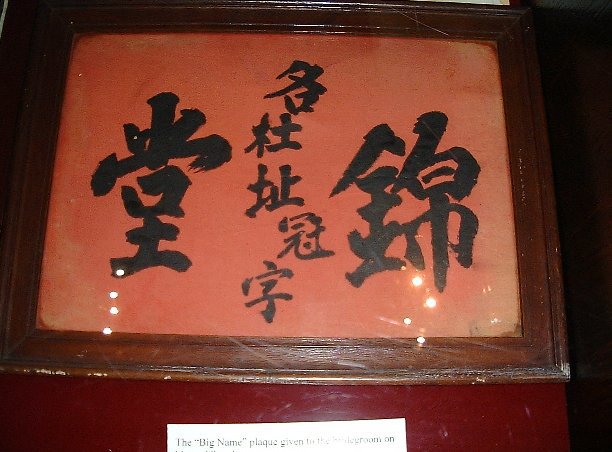 錦
名杜址冠字
堂
The "Big Name" plaque given to the bridegroom on